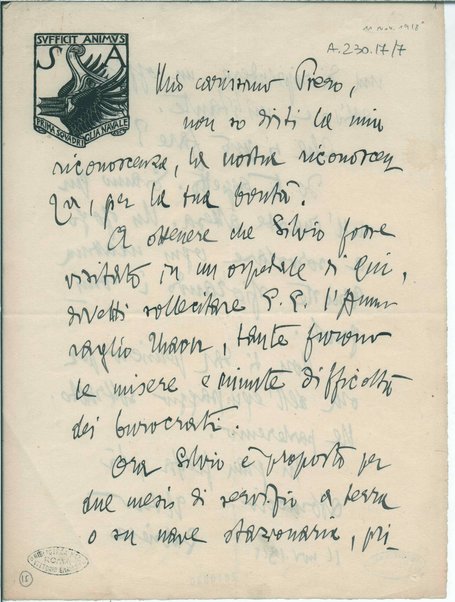 SVFFICIT ANIMVS
S A
PRIMA SQVADRIGLIA NAVALE
11 nov. 1918
A.230.17/7
Mio carissimo Piero,
non so dirti la mia
riconoscenza, la nostra riconoscen
za, per la tua bontà.
A ottenere che Silvio fosse
visitato in un ospedale di qui,
dovetti sollecitare S. E. l'Ammi
raglio, tante furono
le misere e minute difficoltà
dei burocrati.
Ora Silvio è proposto per
due mesi di servizio a terra
o su nave stazionaria, pri
ROMA
VITTORIO